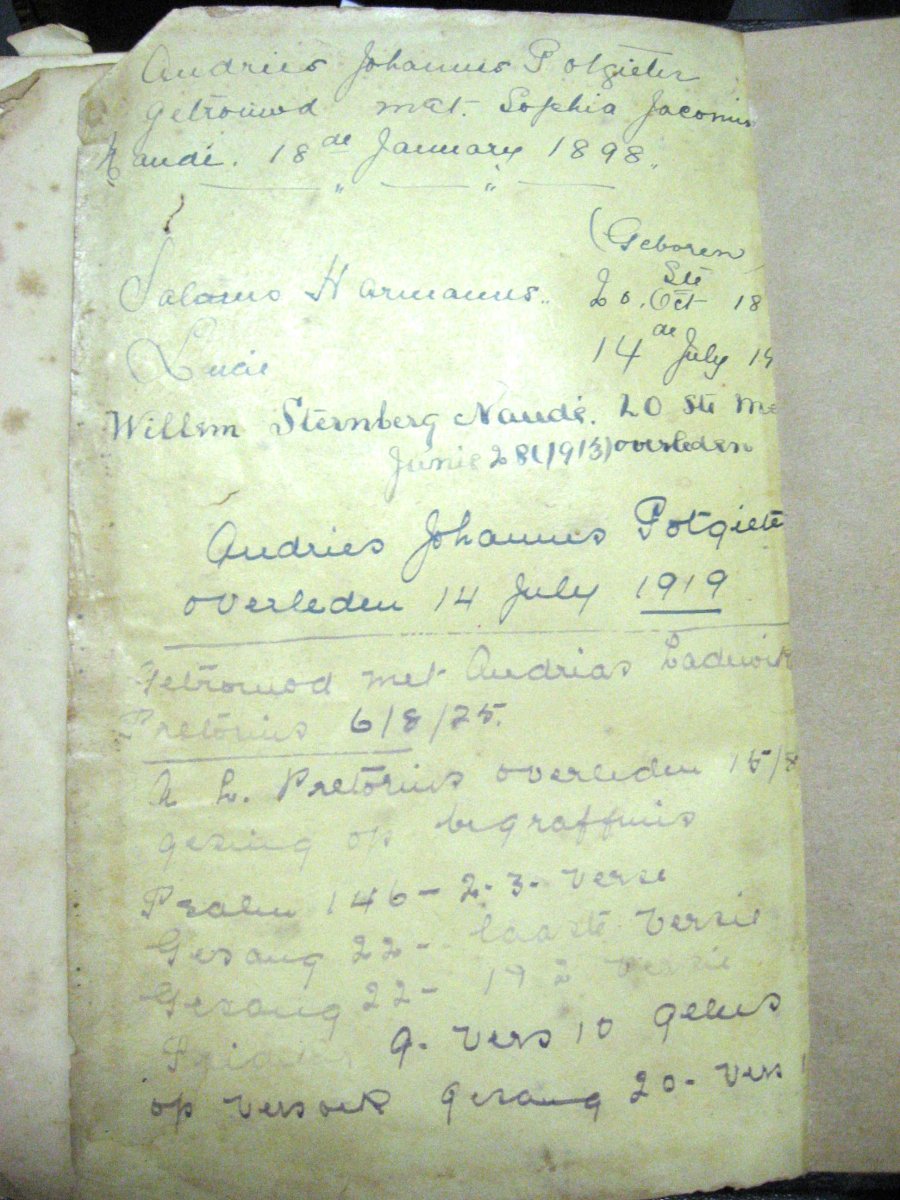 Andries Johannes Potgieter
getrouwd met. Sophia Jacomin
Naudé. 18de January 1898.
(Geboren
Salamo Harmanus.. 20.ste Oct 18
Lucie 14de July 19
Willem Sternberg Naudé. 20 ste Me
Junie 28(1913) overleden
Andries Johannes Potgiete
overleden 14 July 1919
Getrouwd met Andrias Lodewik
Pretorius 6/8/25.
A L. Pretorius overleden 15/8
gesing op begraffnis
Psalm 146 - 2-3- verse
Gesang 22 - laaste versie
Gesang 22 - 1 2 versie
9. vers 10 gelees
op versoek gesang 20- vers